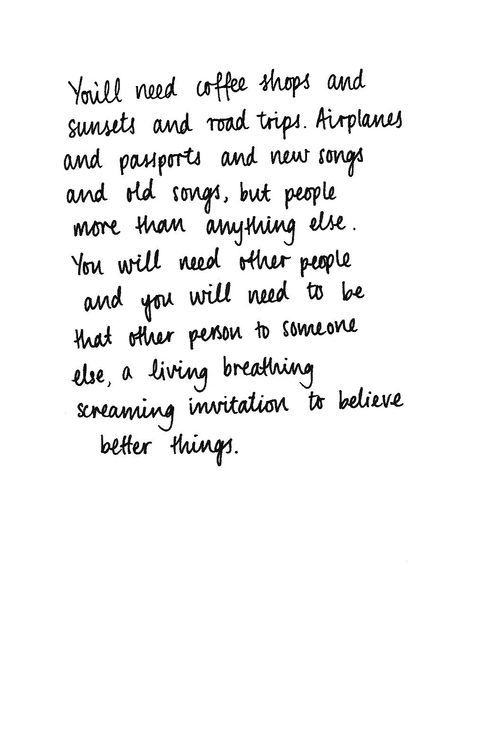 You'll need coffee shops and
sunsets and road trips. Airplanes
and passports and new songs
and old songs, but people
more than anything else.
You will need other people
and you will need to be
that other person to someone
else, a living breathing
screaming invitation to believe
better things.